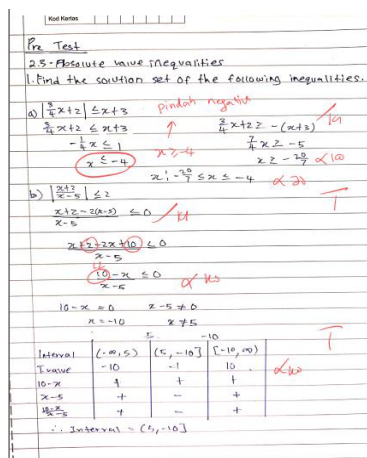 Kod Kertas
Pre Test
2.5 - Absolute value inequalities
1. Find the solution set of the following inequalities.
a) |3/4 x+2| ≤ x+3 pindah negative
3/4 x+2 ≤ x+3 3/4 x+2 ≥ -(x+3)
-1/4 x ≤ 1 7/4 x ≥ -5
x ≤ -4 x ≥ -4 x ≥ -20/7
x: -20/7 ≤ x ≤ -4
b) |x+2 / x-5| ≤ 2
x+2-2(x-5) / x-5 ≤ 0
x+2+2x+10 / x-5 ≤ 0
12
10-x / x-5 ≤ 0
10-x = 0 x-5 ≠ 0
x = -10 x ≠ 5
5 -10
Interval (-∞, 5) (5, -10] [-10, ∞)
T value -10 -1 10
10-x + + +
x-5 + - +
10-x / x-5 + - +
∴ Interval = (5, -10]